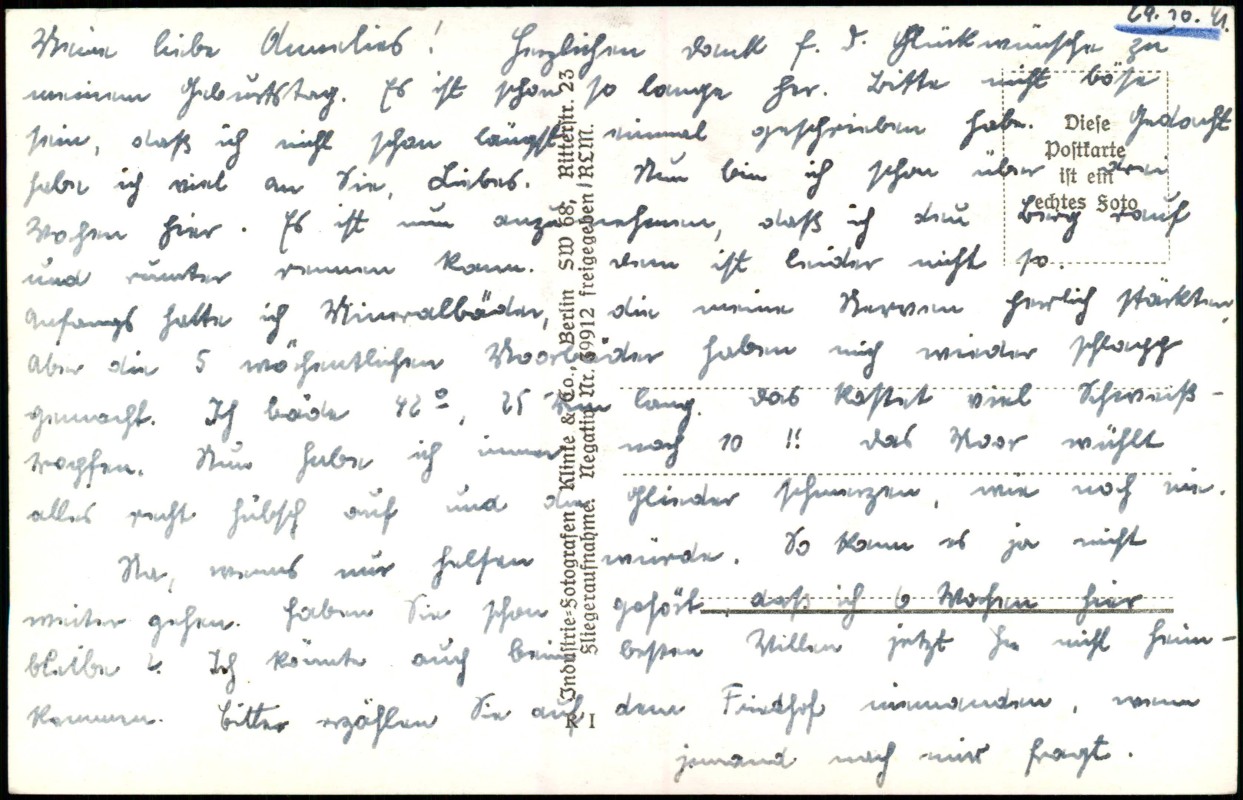 29.10.41.
Meine liebe Annelies! Herzlichen Dank f. d. Glückwünsche zu
meinem Geburtstag. Es ist schon so lange her. Bitte nicht böse
sein, daß ich nicht schon längst einmal geschrieben habe. Gedacht
habe ich viel an Sie, Liebes. Nun bin ich schon über drei
Wochen hier. Es ist nun anzunehmen, daß ich den Berg rauf
und runter rennen kann. Dem ist leider nicht so.
Anfangs hatte ich Mineralbäder, die meine Nerven herrlich stärkten,
aber die 5 wöchentlichen Moorbäder haben mich wieder schlapp
gemacht. Ich bade 42°, 25 Min lang. Das kostet viel Schweiß-
tropfen. Nun habe ich immer noch 10 !! Das Moor wühlt
alles recht hübsch auf und die Glieder schmerzen, wie noch nie.
Na, wenns nur helfen würde. So kann es ja nicht
weiter gehen. Haben Sie schon gehört daß ich 6 Wochen hier
bleibe? Ich könnte auch beim besten Willen jetzt nicht heim-
kommen. Bitte erzählen Sie auf dem Friedhof niemanden, wenn
jemand nach mir fragt.
Diese
Postkarte
ist ein
echtes Foto
Industrie-Fotografen Klinke & Co., Berlin SW 68, Ritterstr. 23
Fliegeraufnahme. Negativ Nr. 39912 freigegeben/RLM.
R I